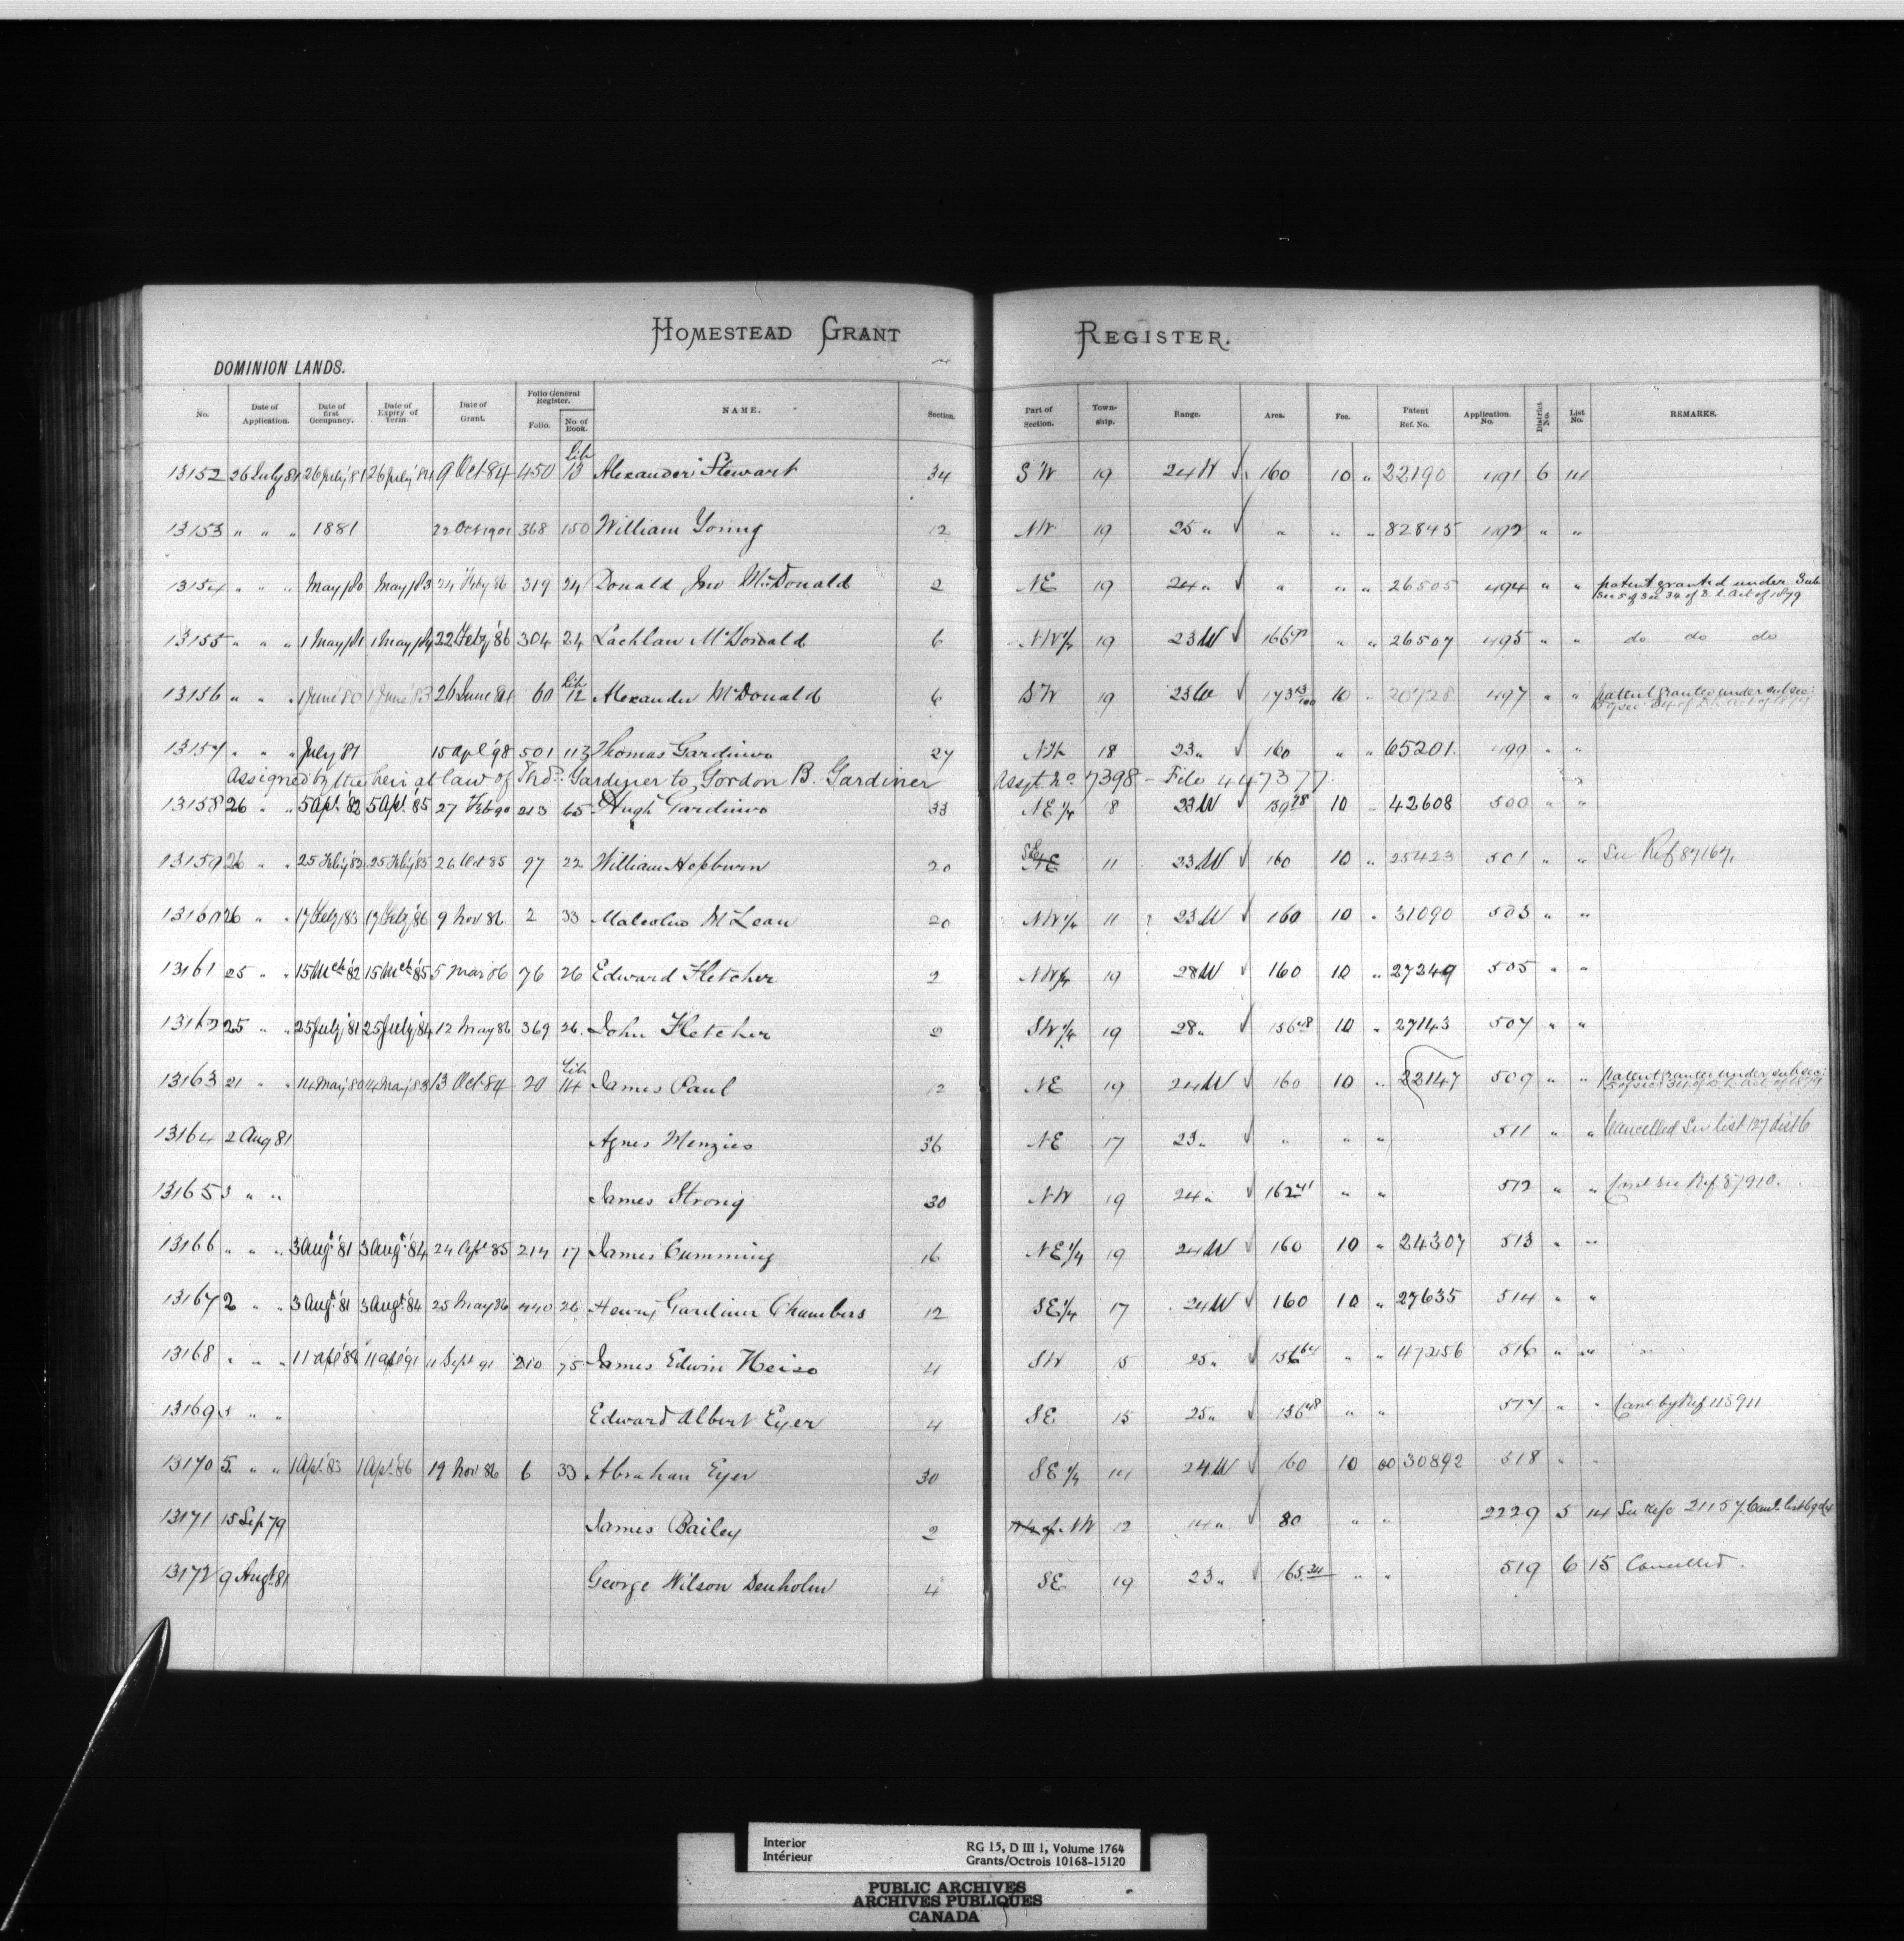 HOMESTEAD GRANT REGISTER.
DOMINION LANDS.
No. Date of Application. Date of first Occupancy. Date of Expiry of Term. Date of Grant. Folio General Register. Folio. No. of Book. NAME. Section. Part of Section. Town-ship. Range. Area. Fee. Patent Ref. No. Application No. District No. List No. REMARKS.
13152 26 July 81 26 July '81 26 July '84 9 Oct 84 450 Lib 13 Alexander Stewart 34 SW 19 24 W √ 160 10 " 22190 491 6 14
13153 " " " 1881 22 Oct 1901 368 150 William Young 12 NW 19 25 " √ " " " 82845 492 " "
13154 " " " May/80 May/83 24 Feby 86 319 24 Donald Jno McDonald 2 NE 19 24 " √ " " " 26505 494 " " patent granted under Sub Sec 5 of Sec 34 of D. L. Act of 1879
13155 " " " 1 May/81 1 May/84 22 Feby '86 304 24 Lachlan McDonald 6 NW 1/4 19 23 W √ " " 26507 495 " " do do do
13156 " " " 1 June '80 1 June '83 26 June 84 60 Lib 12 Alexander McDonald 6 SW 19 23 W √ 173 13/100 10 " 20728 497 " " patent granted under sub sec: 5 of sec: 34 of D. L. Act of 1879
13157 " " " July 81 15 Apl '98 501 113 Thomas Gardiner 27 18 23 " √ 160 " " 65201 499 " "
Assigned by the heir at law of Thos. Gardiner to Gordon B. Gardiner Assgt No 7398 - File 447377
13158 26 " " 5 Apl '82 5 Apl '85 27 Feb 90 213 65 Hugh Gardiner 33 NE 1/4 18 23 W √ 159 78 10 " 42608 500 " "
13159 26 " " 25 Feby '82 25 Feby '85 26 Oct 85 97 22 William Hepburn 20 SE 11 23 W √ 160 10 " 25423 501 " " See Ref 87167.
13160 26 " " 17 Feby '83 17 Feby '86 9 Nov 86 2 33 Malcolm McLean 20 NW 1/4 11 23 W √ 160 10 " 31090 503 " "
13161 25 " " 15 Mch '82 15 Mch '85 5 Mar 86 76 26 Edward Fletcher 2 NW 1/4 19 28 W √ 160 10 " 27249 505 " "
13162 25 " " 25 July '81 25 July '84 12 May 86 369 26 John Fletcher 2 SW 1/4 19 28 " √ 156 48 10 " 27143 507 " "
13163 21 " " 14 May '80 14 May '83 13 Oct 84 20 Lib 14 James Paul 12 NE 19 24 W √ 160 10 " 22147 509 " " patent granted under sub sec: 5 of sec: 34 of D. L. Act of 1879
13164 2 Aug 81 Agnes Menzies 36 NE 17 23 " √ " " " 511 " " Cancelled See list 127 dist 6
13165 3 " " James Strong 30 NW 19 24 " √ 162 41 " " 512 " " Canl see Ref. 87910.
13166 " " " 3 Augt '81 3 Augt '84 24 85 214 17 James Cumming 16 NE 1/4 19 24 W √ 160 10 " 24307 513 " "
13167 2 " " 3 Augt '81 3 Augt '84 25 May 86 440 26 Henry Gardiner Chambers 12 SE 1/4 17 24 W √ 160 10 " 27635 514 " "
13168 " " " 11 Apl '88 11 Apl '91 11 Sept 91 210 75 James Edwin Heise 4 SW 15 25 " √ 156 64 " " 47256 516 " "
13169 5 " " Edward Albert Eyer 4 SE 15 25 " √ 156 48 " " 517 " " Canl by Ref 115911
13170 5 " " 1 Apl '83 1 Apl '86 19 Nov 86 6 33 Abraham Eyer 30 SE 1/4 14 24 W √ 160 10 00 30892 518 " "
13171 15 Sep 79 James Bailey 2 NW 12 14 " √ 80 " " 2229 5 14 See Refce 21157.
13172 9 Augt 81 George Wilson Denholm 4 SE 19 23 " √ 165.34 " " 519 6 15 Cancelled.
Interior
Intérieur
RG 15, D III 1, Volume 1764
Grants/Octrois 10168-15120
PUBLIC ARCHIVES
ARCHIVES PUBLIQUES
CANADA